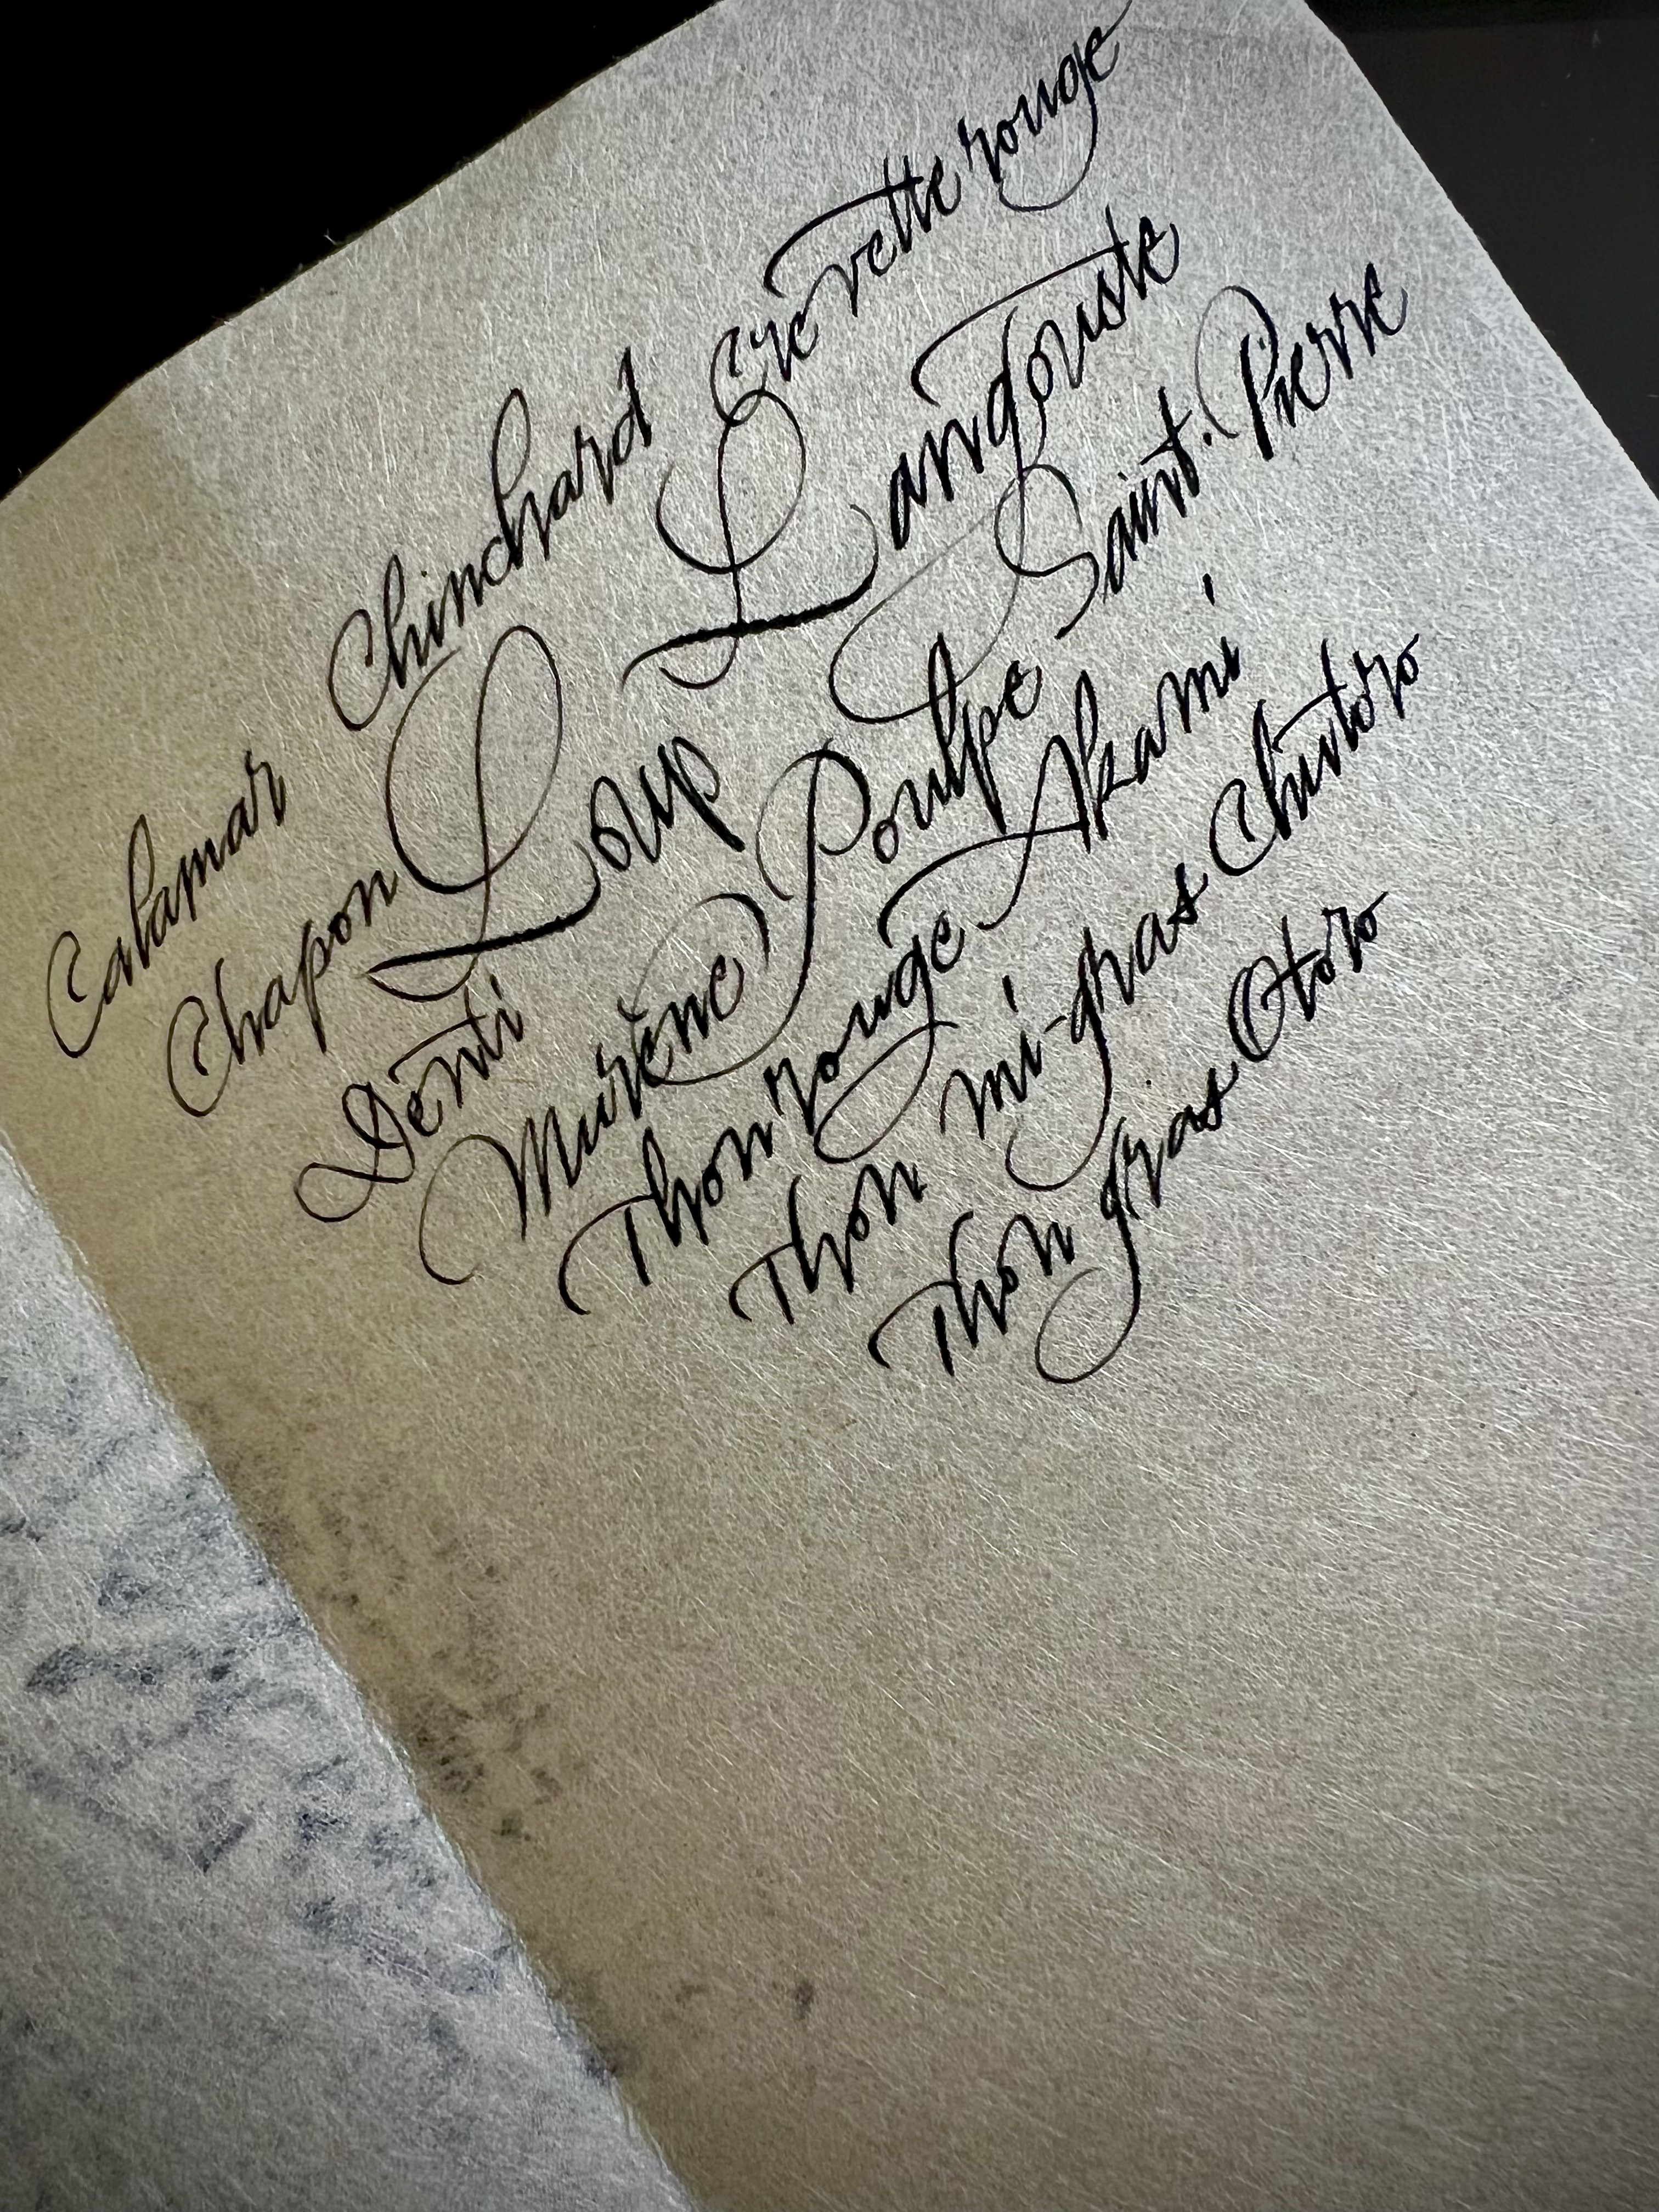 Calamar Chinchard Crevette rouge
Chapon Loup Langouste
Denti Murène Poulpe Saint-Pierre
Thon rouge Akami
Thon mi-gras Chutoro
Thon gras Otoro